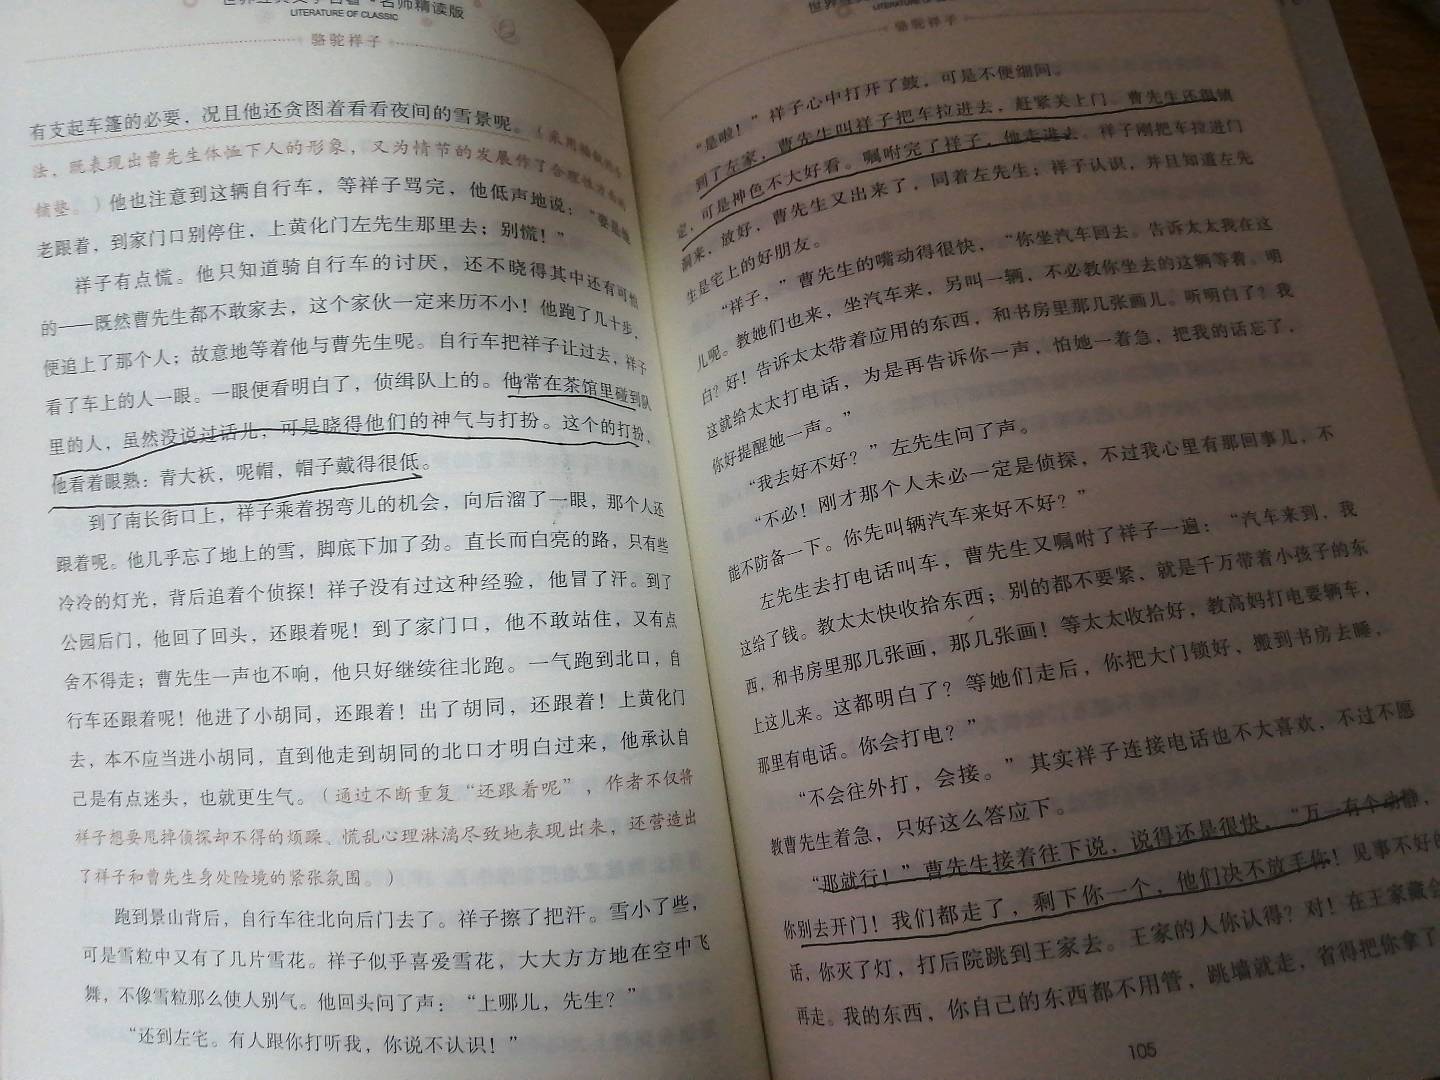 世界经典文学名著·名师精读版
LITERATURE OF CLASSIC
骆驼祥子
有支起车篷的必要，况且他还贪图着看看夜间的雪景呢。（采用
法，既表现出曹先生体恤下人的形象，又为情节的发展作了合理
铺垫。）他也注意到这辆自行车，等祥子骂完，他低声地说：“要是他
老跟着，到家门口别停住，上黄化门左先生那里去；别慌！”
祥子有点慌。他只知道骑自行车的讨厌，还不晓得其中还有可怕
的——既然曹先生都不敢家去，这个家伙一定来历不小！他跑了几十步，
便追上了那个人；故意地等着他与曹先生呢。自行车把祥子让过去，祥子
看了车上的人一眼。一眼便看明白了，侦缉队上的。他常在茶馆里碰到队
里的人，虽然没说过话儿，可是晓得他们的神气与打扮。这个的打扮，
他看着眼熟：青大袄，呢帽，帽子戴得很低。
到了南长街口上，祥子乘着拐弯儿的机会，向后溜了一眼，那个人还
跟着呢。他几乎忘了地上的雪，脚底下加了劲。直长而白亮的路，只有些
冷冷的灯光，背后追着个侦探！祥子没有过这种经验，他冒了汗。到了
公园后门，他回了回头，还跟着呢！到了家门口，他不敢站住，又有点
舍不得走；曹先生一声也不响，他只好继续往北跑。一气跑到北口，自
行车还跟着呢！他进了小胡同，还跟着！出了胡同，还跟着！上黄化门
去，本不应当进小胡同，直到他走到胡同的北口才明白过来，他承认自
己是有点迷头，也就更生气。（通过不断重复“还跟着呢”，作者不仅将
祥子想要甩掉侦探却不得的烦躁、慌乱心理淋漓尽致地表现出来，还营造出
了祥子和曹先生身处险境的紧张氛围。）
跑到景山背后，自行车往北向后门去了。祥子擦了把汗。雪小了些，
可是雪粒中又有了几片雪花。祥子似乎喜爱雪花，大大方方地在空中飞
舞，不像雪粒那么使人别气。他回头问了声：“上哪儿，先生？”
“还到左宅。有人跟你打听我，你说不认识！”
LITERATURE OF CLASSIC
骆驼祥子
“是啦！”祥子心中打开了鼓，可是不便细问。
到了左家，曹先生叫祥子把车拉进去，赶紧关上门。曹先生还很镇
定，可是神色不大好看。嘱咐完了祥子，他走进去。祥子刚把车拉进门
洞来，放好，曹先生又出来了，同着左先生；祥子认识，并且知道左先
生是宅上的好朋友。
“祥子，”曹先生的嘴动得很快，“你坐汽车回去。告诉太太我在这
儿呢。教她们也来，坐汽车来，另叫一辆，不必教你坐去的这辆等着。明
白？好！告诉太太带着应用的东西，和书房里那几张画儿。听明白了？我
这就给太太打电话，为是再告诉你一声，怕她一着急，把我的话忘了，
你好提醒她一声。”
“我去好不好？”左先生问了声。
“不必！刚才那个人未必一定是侦探，不过我心里有那回事儿，不
能不防备一下。你先叫辆汽车来好不好？”
左先生去打电话叫车，曹先生又嘱咐了祥子一遍：“汽车来到，我
这给了钱。教太太快收拾东西；别的都不要紧，就是千万带着小孩子的东
西，和书房里那几张画，那几张画！等太太收拾好，教高妈打电要辆车，
上这儿来。这都明白了？等她们走后，你把大门锁好，搬到书房去睡，
那里有电话。你会打电？”
“不会往外打，会接。”其实祥子连接电话也不大喜欢，不过不愿
教曹先生着急，只好这么答应下。
“那就行！”曹先生接着往下说，说得还是很快，“万一有个动静，
你别去开门！我们都走了，剩下你一个，他们决不放手你！见事不好的
话，你灭了灯，打后院跳到王家去。王家的人你认得？对！在王家藏会
再走。我的东西，你自己的东西都不用管，跳墙就走，省得把你拿了
105